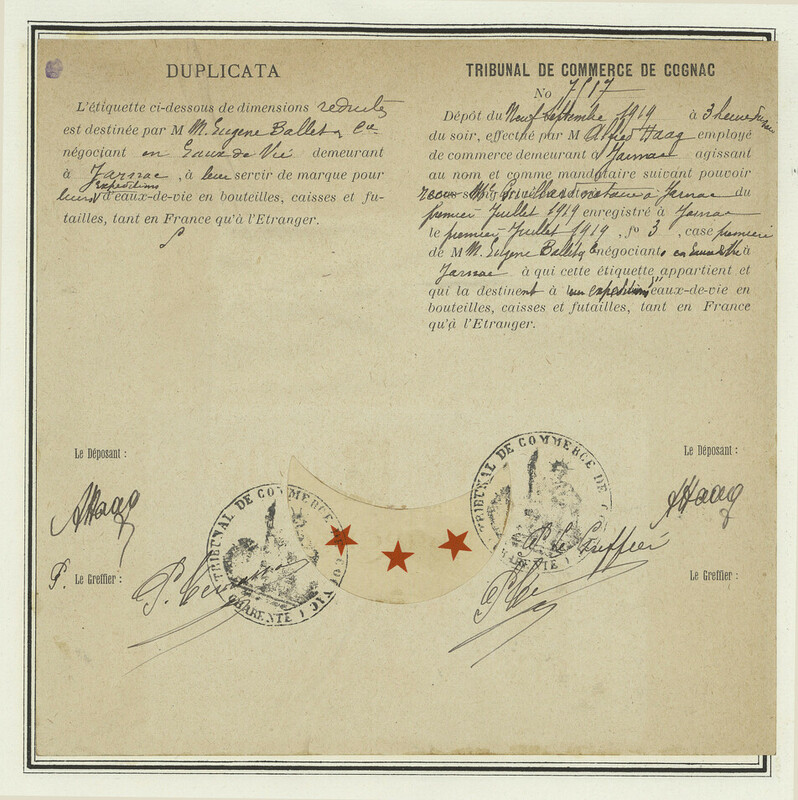 DUPLICATA
L'étiquette ci-dessous de dimensions reduites
est destinée par M M. Eugene Ballet & Cie
négociant en Eaux de Vie demeurant
à Jarnac, à leur servir de marque pour
leurs expeditions d'eaux-de-vie en bouteilles, caisses et fu-
tailles, tant en France qu'à l'Etranger.
TRIBUNAL DE COMMERCE DE COGNAC
No 7517
Dépôt du Neuf Septembre 1919 à 3 heures
du soir, effectué par M Alfred Haag employé
de commerce demeurant à Jarnac agissant
au nom et comme mandataire suivant pouvoir
notaire à Jarnac du
premier Juillet 1919 enregistré à Jarnac
le premier Juillet 1919, fo 3, case première
de M M. Eugene Ballet & Cie négociants en Eaux de Vie à
Jarnac à qui cette étiquette appartient et
qui la destinent à expeditions d'eaux-de-vie en
bouteilles, caisses et futailles, tant en France
qu'à l'Etranger.
Le Déposant :
AHaag
P. Le Greffier :
TRIBUNAL DE COMMERCE DE COGNAC
CHARENTE
Le Déposant :
AHaag
Le Greffier :
P. le Greffier
TRIBUNAL DE COMMERCE DE